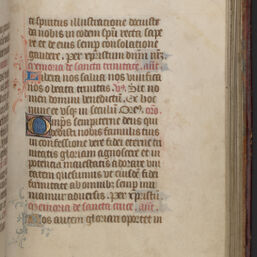 ti spiritus illustratione docuisti
da nobis in eodem spu recta sape
re et de eius semp consolatione
gaudere. per xpistum dnm nrm
emoria de sancta trinitate. ant.
Libera nos salua nos viuifica
nos o beata trinitas. vs. Sit no
men domini benedictu. Ex hoc
nunc et vsq in seculu. oro.
Omps sempiterne deus qui
dedisti nobis famulis tuis
in confessione vere fidei eterne tri
nitatis gloriam agnoscere et in
potencia maiestatis adorare vni
tatem quesumus vt eiusde fidei
firmitate ab omnibz semp mu
niamur aduersis. per xpistu
emoria de sancta cruce. ant.
Nos autem gloriari oportet in